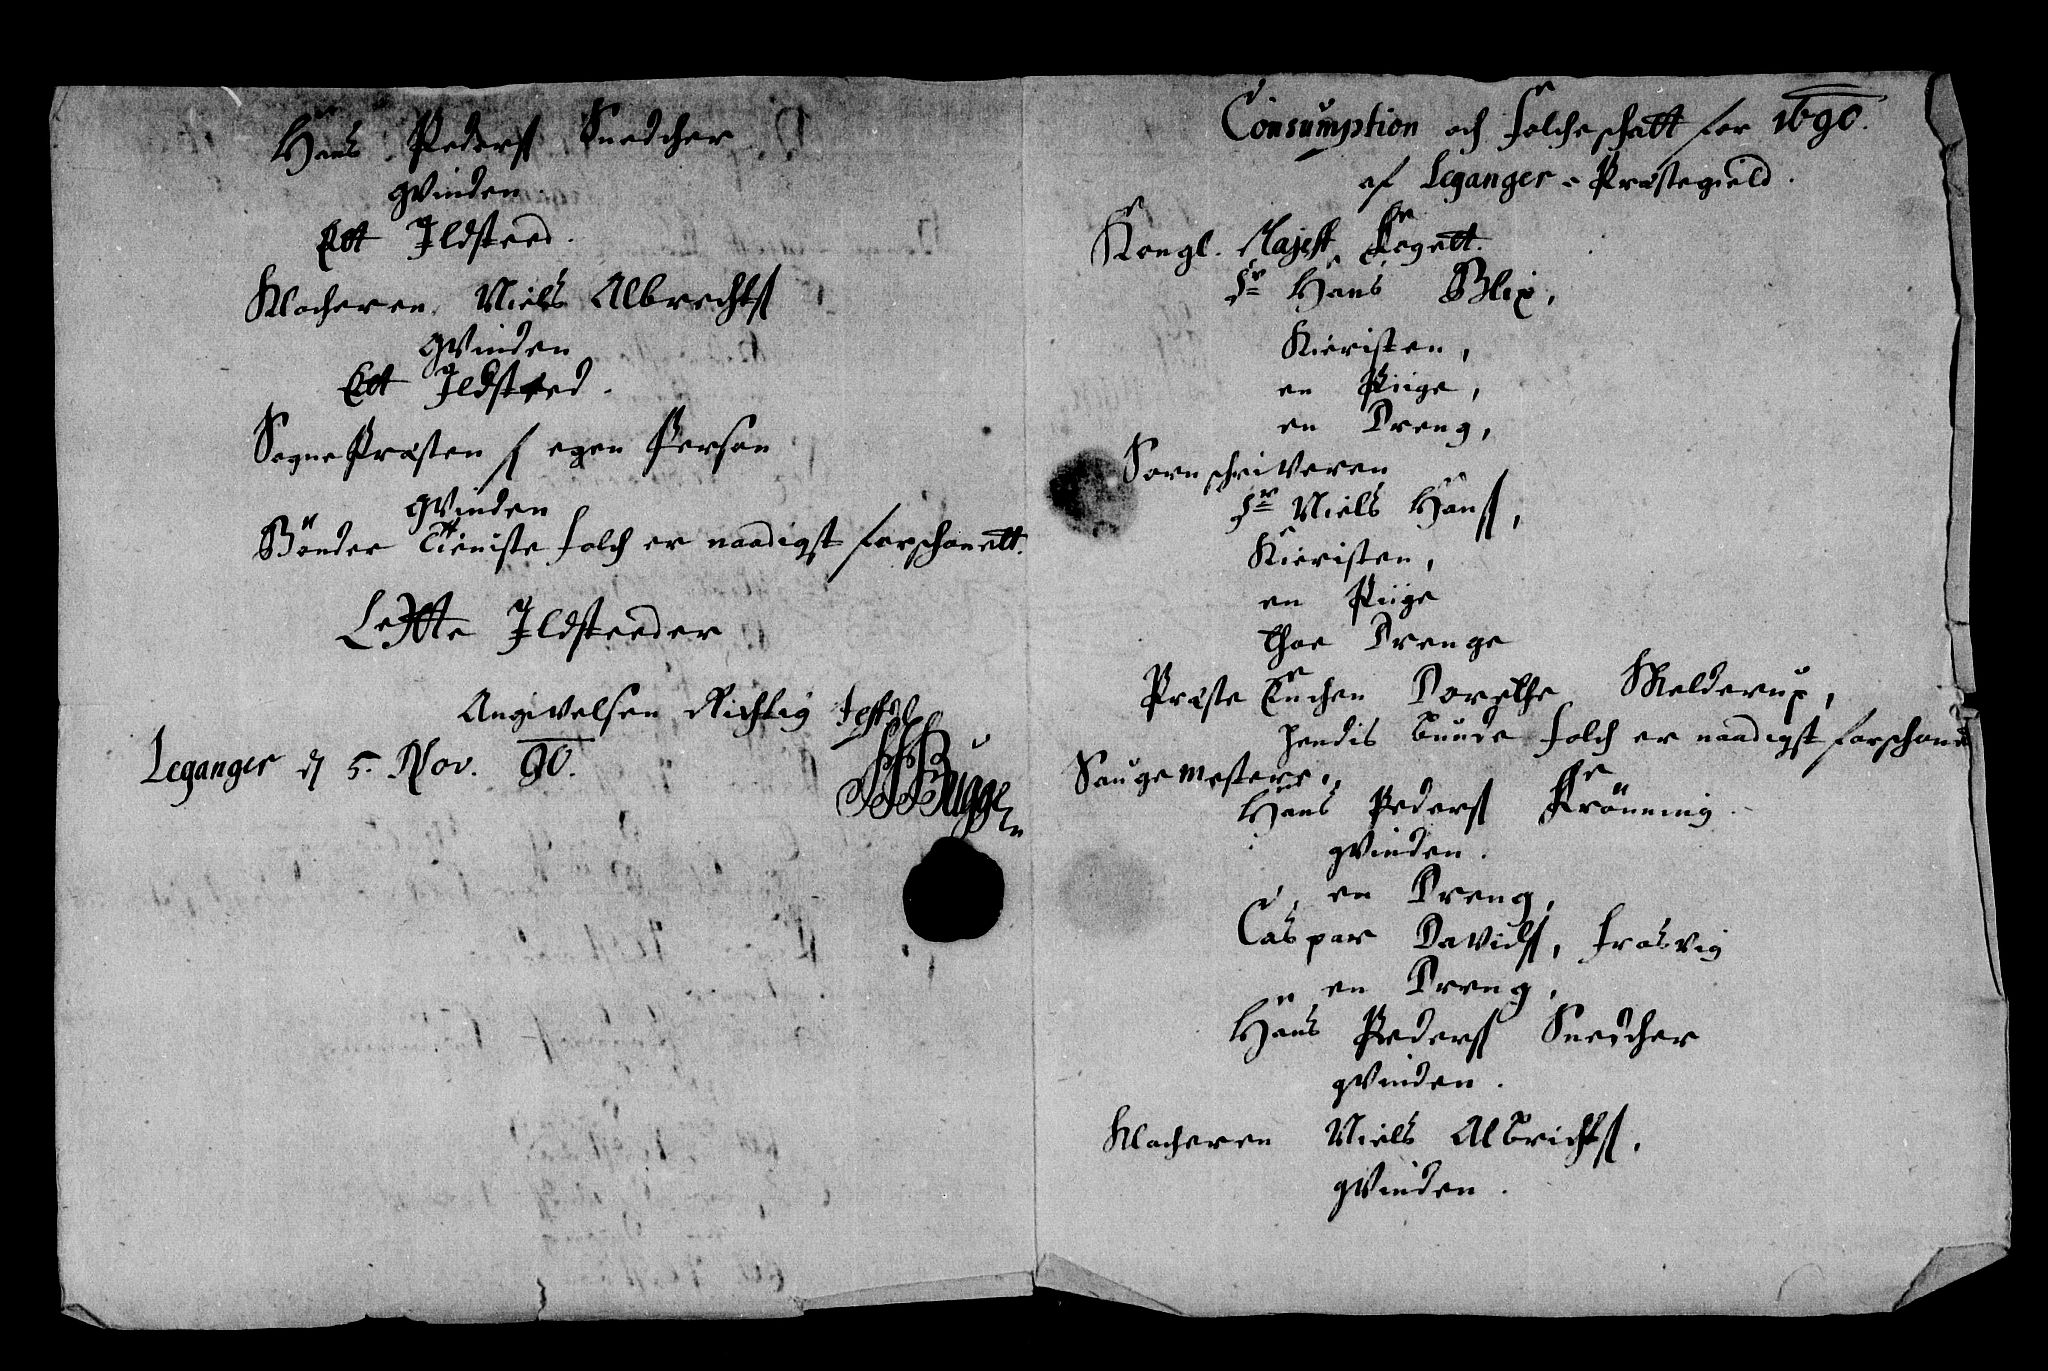 Hans Peders Snedcher
qvinden.
Ett Ildsteed.
Klocheren Niels Albrechts
qvinden
Ett Ildsted.
Sogne Præsten f egen Person
qvinden
Bönder Tieniste folch er naadigst forschonett.
Ildsteeder
Angivelsen Richtig testerer
Leganger d 5. Nov. 90.
Bugge
Consumption och folcheschatt for 1690.
af Leganger - Præstegield.
Kongl. Majest Fogett.
Sr Hans Blix,
Kieristen,
en Piige,
en Dreng,
Sorenschriveren
Sr Niels Hanss,
Kieristen,
en Piige
thoe Drenge
Præste Enchen Dorethe Melderup,
hendis bunde folch er naadigst forschone
Saugemestere,
Hans Peders Krönning.
qvinden.
en Dreng,
Caspar Davids, Frosvig
en Dreng,
Hans Peders Snedcher
qvinden.
Klocheren Niels Albrichts,
qvinden.